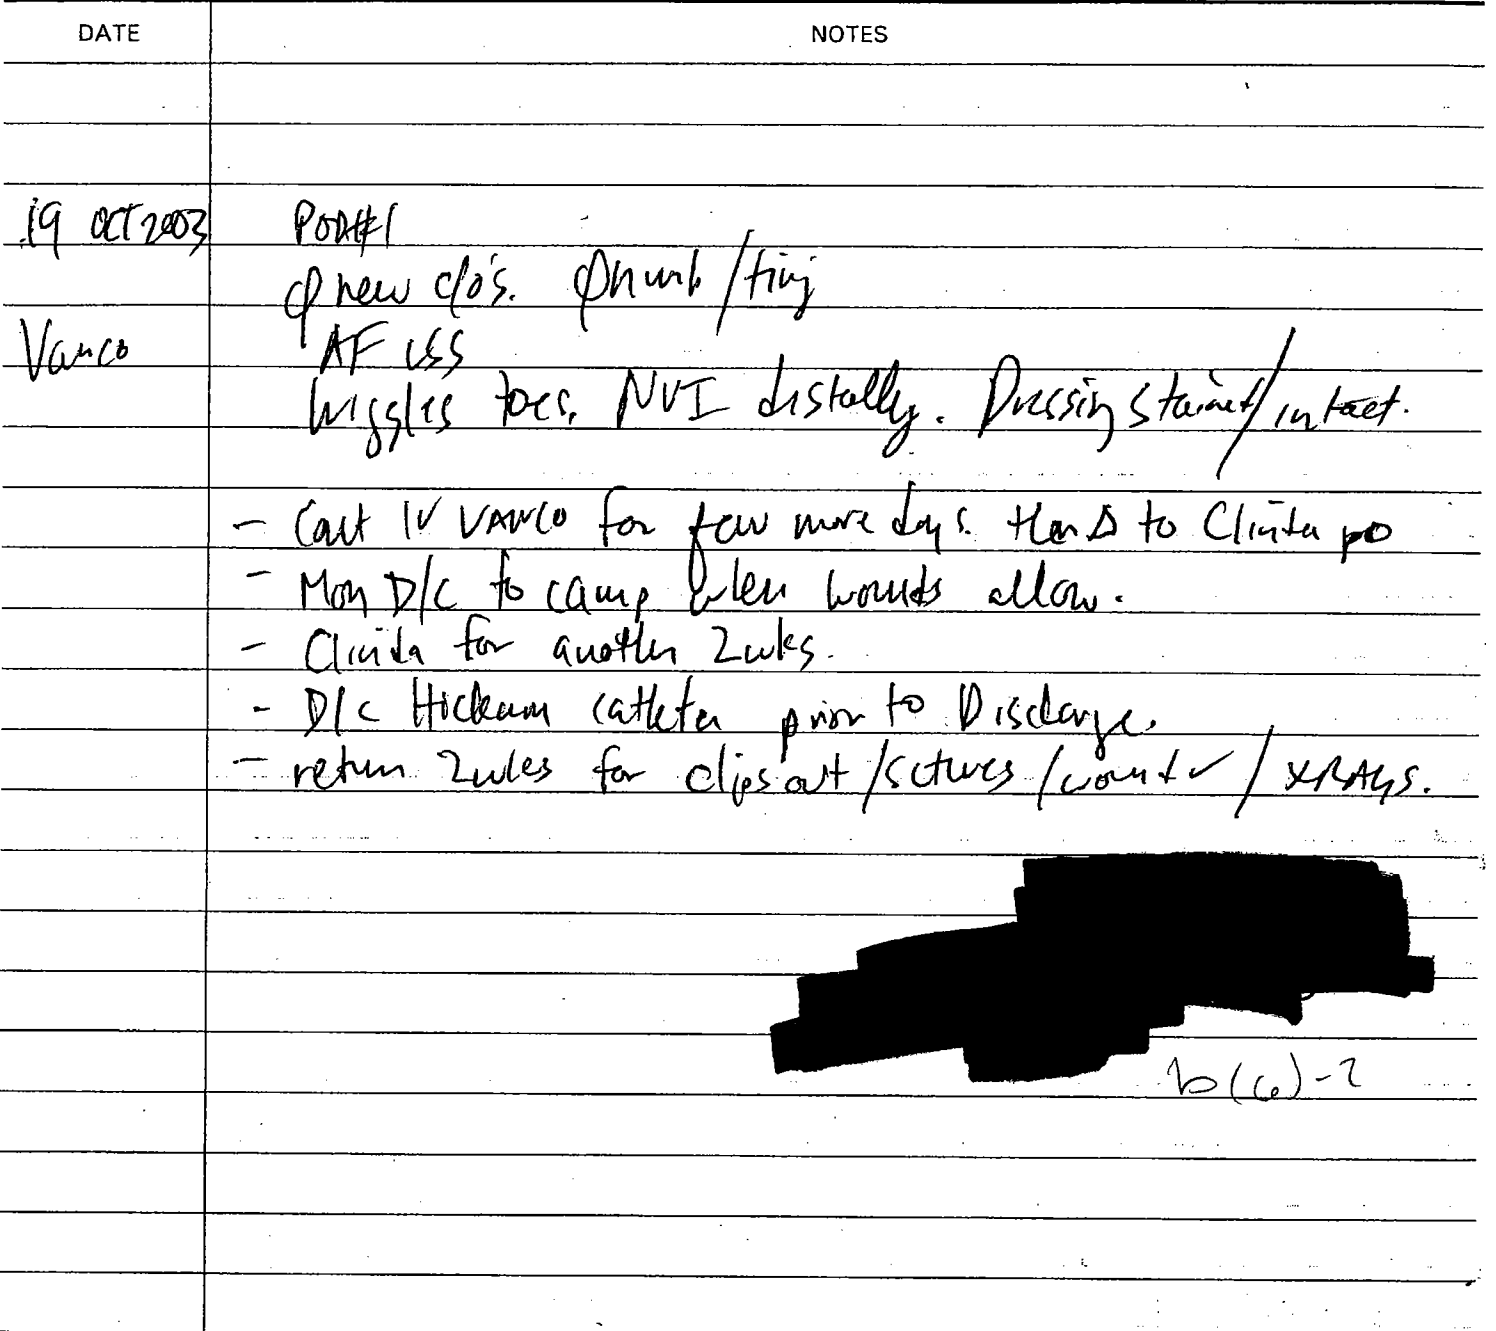 DATE NOTES
19 OCT 2003 POD#1
φ new c/o's. φ numb/ting
Vanco AF VSS
Wiggles toes. NVI distally. Dressing stained/intact.
- Cont IV VANCO for few more days. then Δ to Clinda po
- D/C to camp when wounds allow.
- Clinda for another 2wks.
- D/C Hickman catheter prior to Discharge.
- return 2wks for clips out/sutures/wound ✓/XRAYS.
b(6)-2